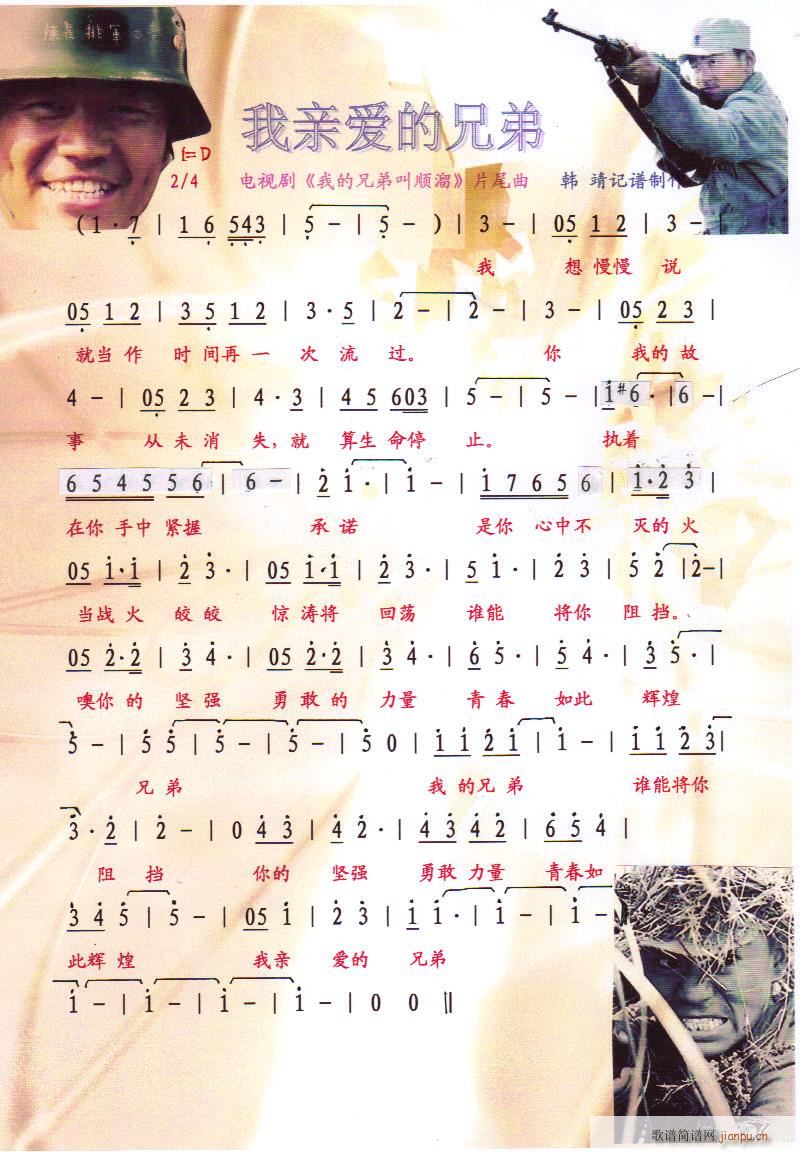 我亲爱的兄弟
1=D
2/4 电视剧《我的兄弟叫顺溜》片尾曲 韩 靖记谱制作
(1·7 | 16 543 | 5 - | 5 - ) | 3 - | 05 12 | 3 - |
我 想 慢慢 说
05 12 | 35 12 | 3·5 | 2 - | 2 - | 3 - | 05 23 |
就当 作 时 间 再 一 次 流 过。 你 我的 故
4 - | 05 23 | 4·3 | 45 603 | 5 - | 5 - | 1#6· | 6 - |
事 从 未 消 失, 就 算生 命停 止。 执着
6545 56 | 6 - | 21· | 1 - | 1765 6 | 1·2 3 |
在你 手中 紧握 承 诺 是你 心中不 灭的 火
05 1·1 | 23· | 05 1·1 | 23· | 51· | 23· | 52 | 2 - |
当战 火 皎皎 惊 涛将 回荡 谁能 将你 阻挡。
05 2·2 | 34· | 05 2·2 | 34· | 65· | 54· | 35· |
噢你 的 坚强 勇 敢 的 力量 青春 如此 辉煌
5 - | 55 | 5 - | 5 - | 50 | 11 21 | 1 - | 11 23 |
兄 弟 我 的 兄 弟 谁能将你
3·2 | 2 - | 0 43 | 42· | 43 42 | 65 4 |
阻 挡 你的 坚强 勇敢 力量 青春如
34 5 | 5 - | 05 1 | 23 | 11· | 1 - | 1 - |
此辉 煌 我亲 爱的 兄弟
1 - | 1 - | 1 - | 1 - | 0 0 ‖
歌谱简谱网 jianpu.cn